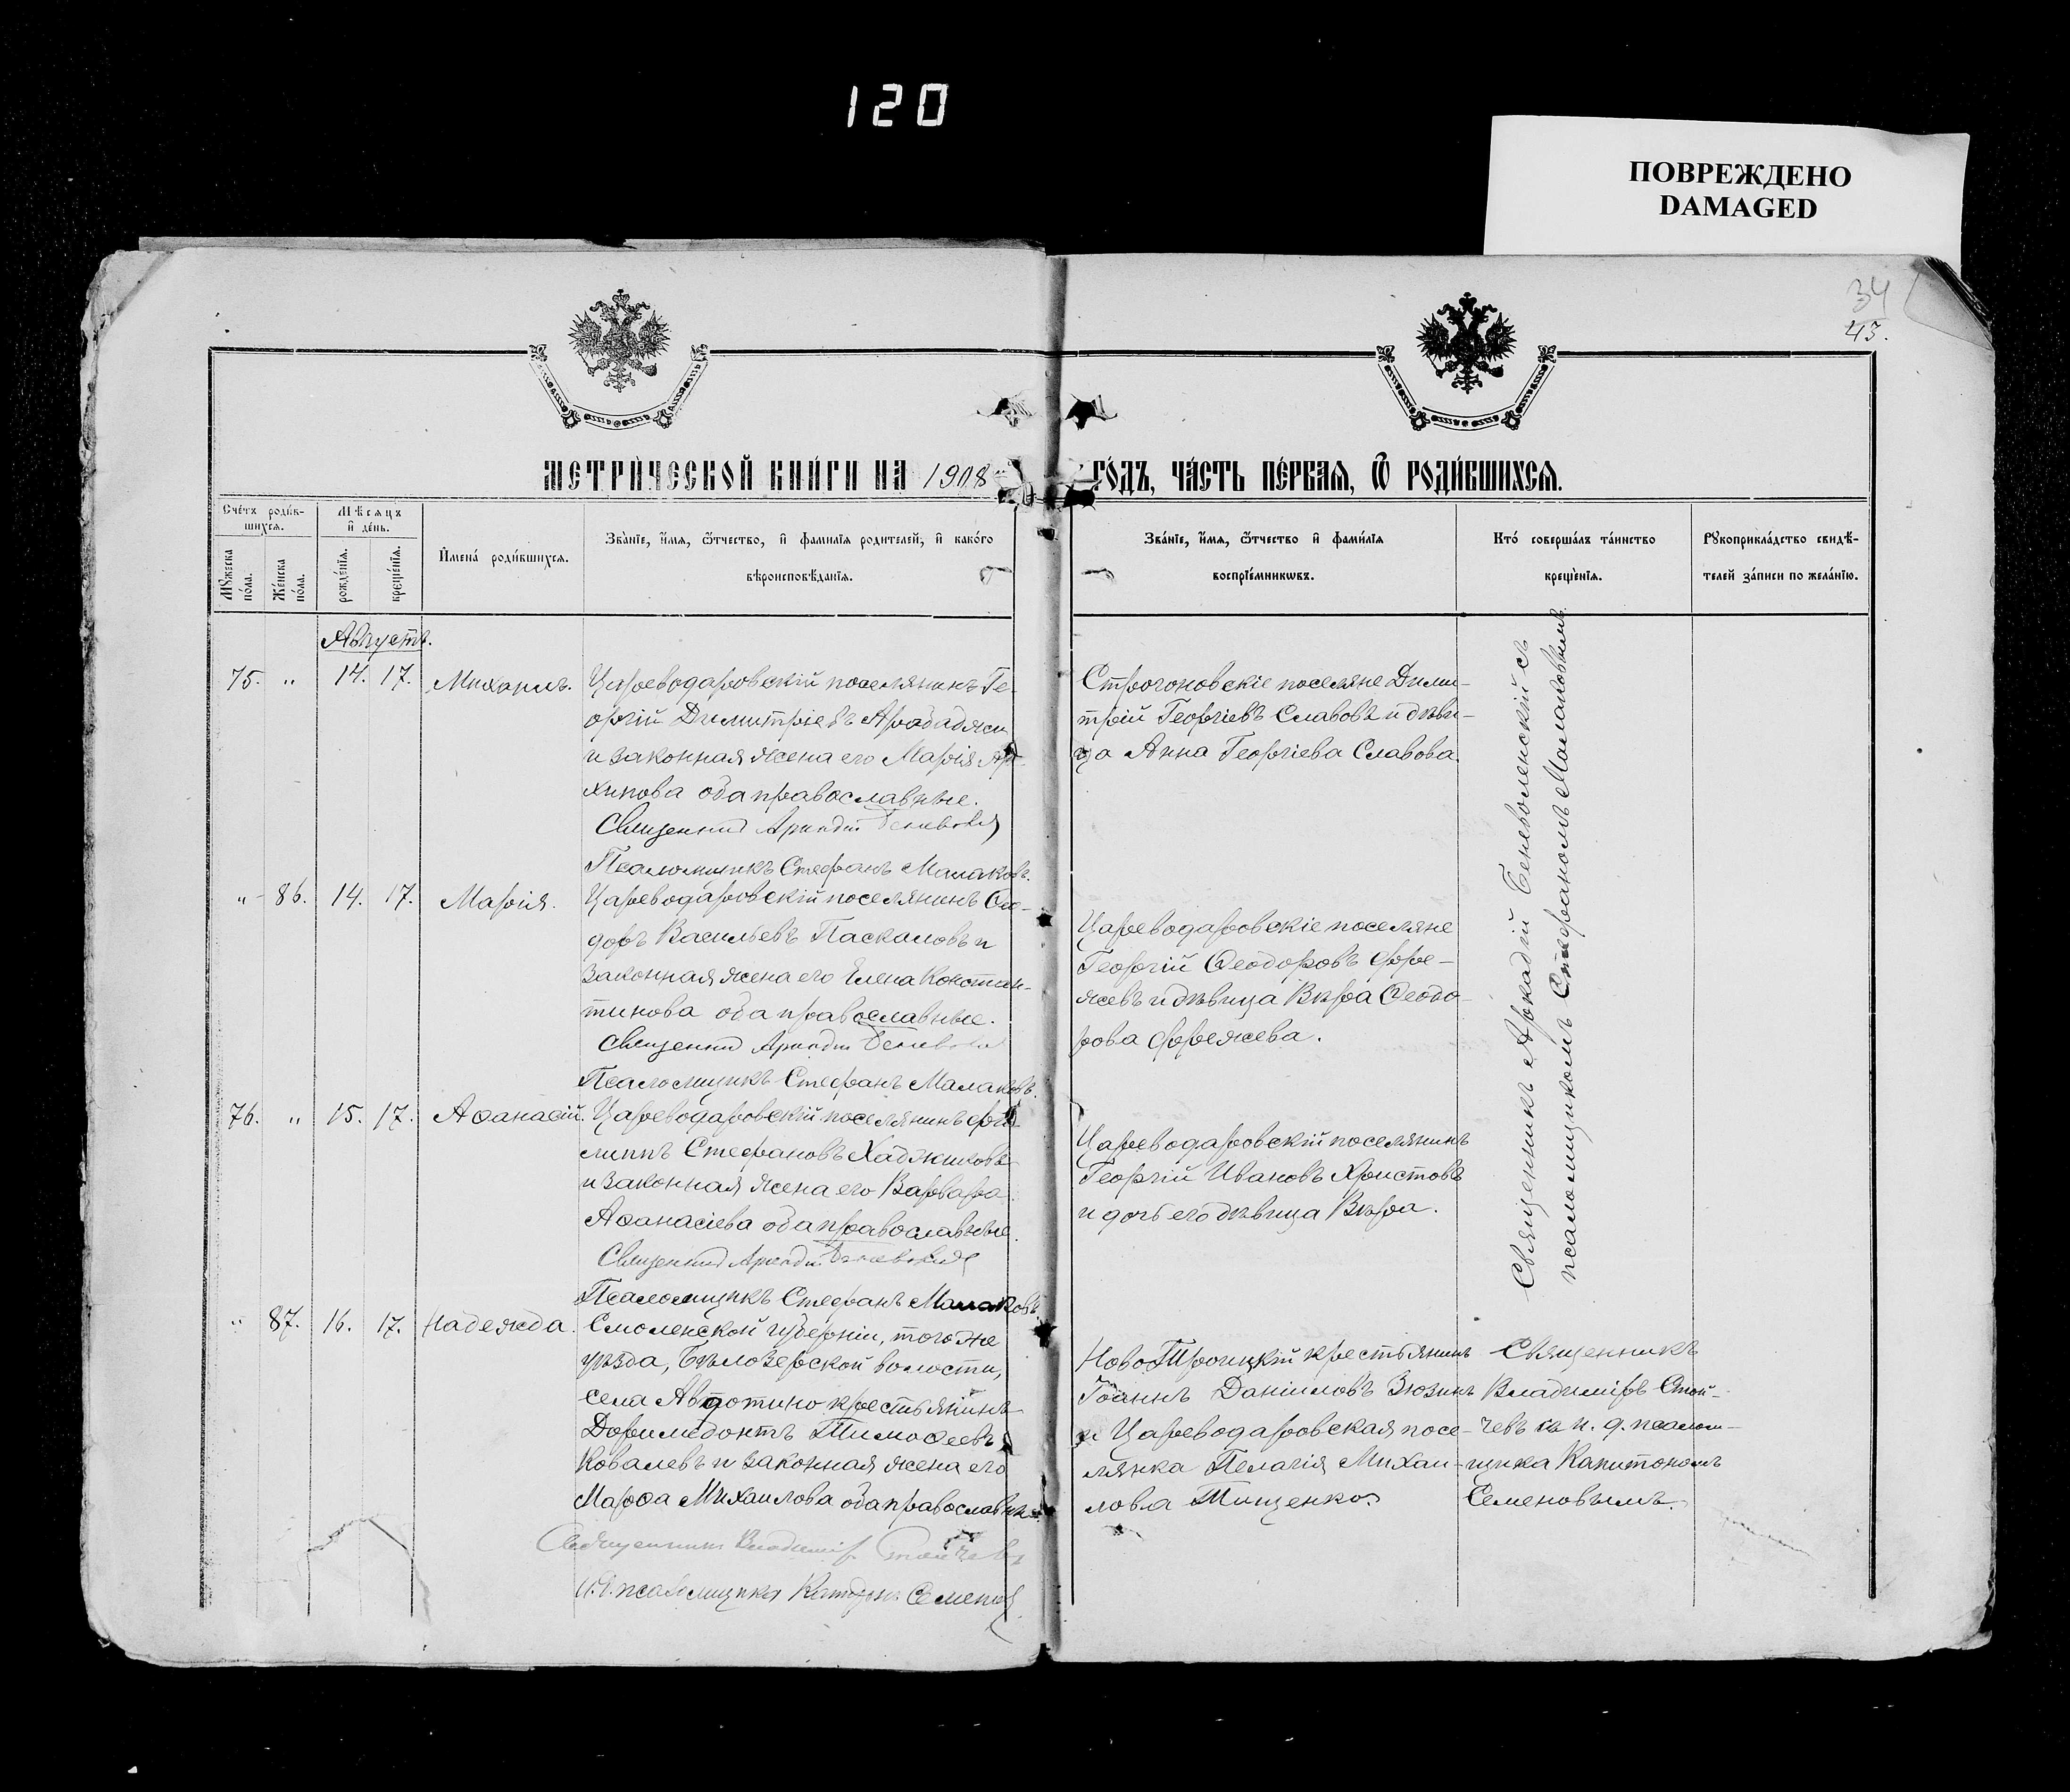 120
ПОВРЕЖДЕНО
DAMAGED
34
43.
МЕТРИЧЕСКОЙ КНИГИ НА 1908
ГОДЪ, ЧАСТЬ ПЕРВАЯ, Ѿ РОДИВШИХСЯ.
Счетъ родив-
шихся.
Мужеска пола.
Женска пола.
Мѣсяцъ
и день.
рожденія.
крещенія.
Имена родившихся.
Званіе, имя, ѿчество, и фамилія родителей, и какого
вѣроисповѣданія.
Званіе, имя, ѿчество и фамилія
воспріемниковъ.
Кто совершалъ таинство
крещенія.
Рукоприкладство свидѣ-
телей записи по желанію.
Августъ.
75. " 14. 17. Михаилъ. Цареводаровскій поселянинъ Ге-
оргій Димитріевъ Арабаджи
и законная жена его Марія Ар-
хипова оба православные.
Священник Аркадий
Псаломщикъ Стефанъ Малаковъ.
Строгоновскіе поселяне Дими-
трій Георгіевъ Славовъ и дѣви-
ца Анна Георгіева Славова.
" 86. 14. 17. Марія. Цареводаровскій поселянинъ Ѳео-
доръ Васильевъ Паскаловъ и
законная жена его Елена Констан-
тинова оба православные.
Священник Аркадий
Псаломщикъ Стефанъ Малаковъ.
Цареводаровскіе поселяне
Георгій Ѳеодоровъ Фре-
жевъ и дѣвица Вѣра Ѳеодо-
рова Фрежева.
76. " 15. 17. Аѳанасій. Цареводаровскій поселянинъ Фи-
липпъ Стефановъ Хаджиковъ
и законная жена его Варвара
Аѳанасіева оба православные.
Священник Аркадий
Псаломщикъ Стефанъ Малаковъ
Цареводаровскій поселянинъ
Георгій Ивановъ Христовъ
и дочь его дѣвица Вѣра.
Священникъ Аркадій Беневоленскій съ
псаломщикомъ Стефаномъ Малаковымъ.
" 87. 16. 17. Надежда. Смоленской губерніи, того же
уѣзда, Бѣлозерской волости,
села Авдотино крестьянинъ
Доримедонтъ Тимоѳеевъ
Ковалевъ и законная жена его
Марѳа Михаилова оба православные.
Священникъ Владиміръ Стойчевъ
И. д. псаломщика Капитонъ Семеновъ
Ново Троицкій крестьянинъ
Іоаннъ Даніиловъ Зюзинъ
и Цареводаровская посе-
лянка Пелагія Михаи-
ловна Тищенко.
Священникъ
Владиміръ Стой-
чевъ съ и. д. псалом-
щика Капитономъ
Семеновымъ.